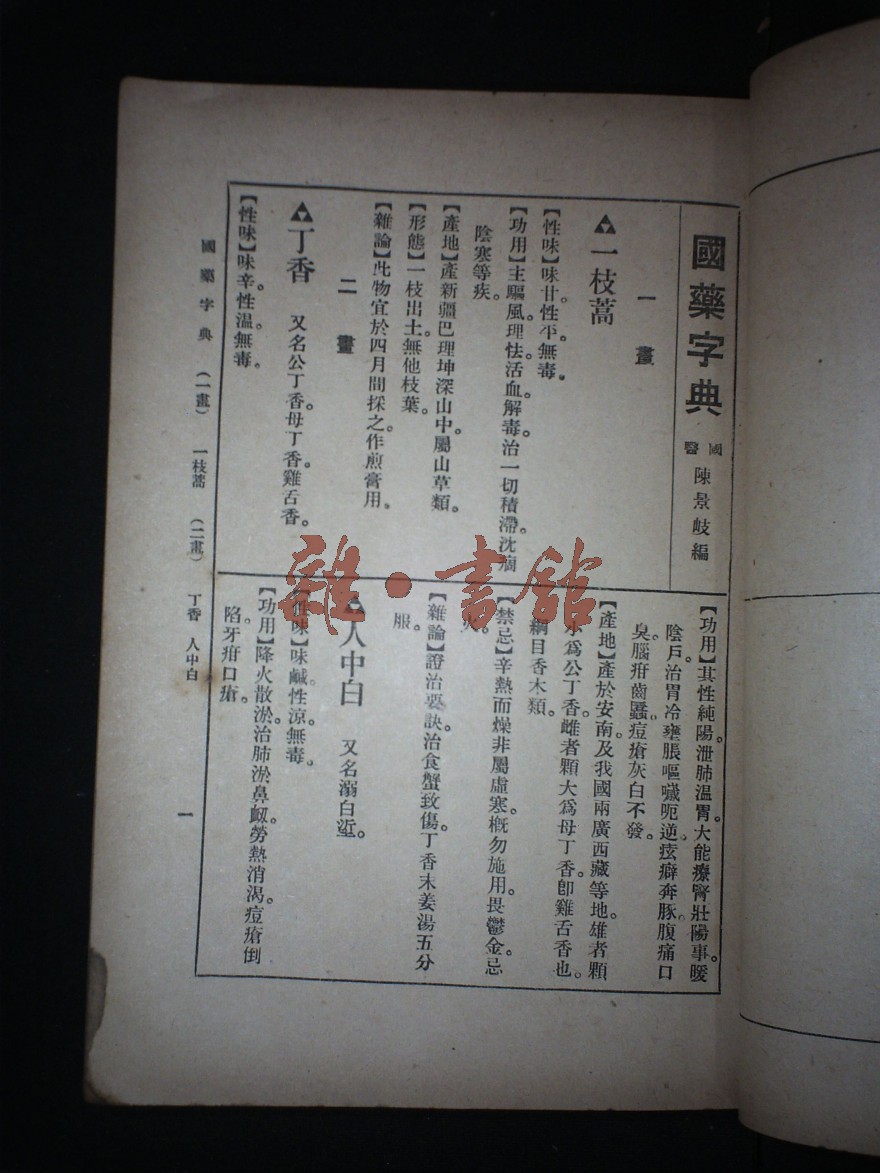 國藥字典
國醫 陳景岐編
一畫
一枝蒿
【性味】味甘。性平。無毒。
【功用】主驅風。理怯。活血。解毒。治一切積滯。沈痼
陰寒等疾。
【產地】產新疆巴理坤深山中。屬山草類。
【形態】一枝出土。無他枝葉。
【雜論】此物宜於四月間採之。作煎膏用。
二畫
丁香 又名公丁香。母丁香。雞舌香。
【性味】味辛。性溫。無毒。
【功用】其性純陽。泄肺溫胃。大能療腎壯陽事。暖
陰戶。治胃冷壅脹。嘔噦呃逆。痃癖奔豚。腹痛口
臭。腦疳齒䘌。痘瘡灰白不發。
【產地】產於安南。及我國兩廣西藏等地。雄者顆
小為公丁香。雌者顆大為母丁香。即雞舌香也。
綱目香木類。
【禁忌】辛熱而燥。非屬虛寒。概勿施用。畏鬱金。忌
火。
【雜論】證治要訣治食蟹致傷。丁香末姜湯五分
服。
人中白 又名溺白垽。
【性味】味鹹。性涼。無毒。
【功用】降火散淤。治肺淤鼻衂。勞熱消渴。痘瘡倒
陷。牙疳口瘡。
國藥字典 （一畫） 一枝蒿 （二畫） 丁香 人中白 一
雜·書館